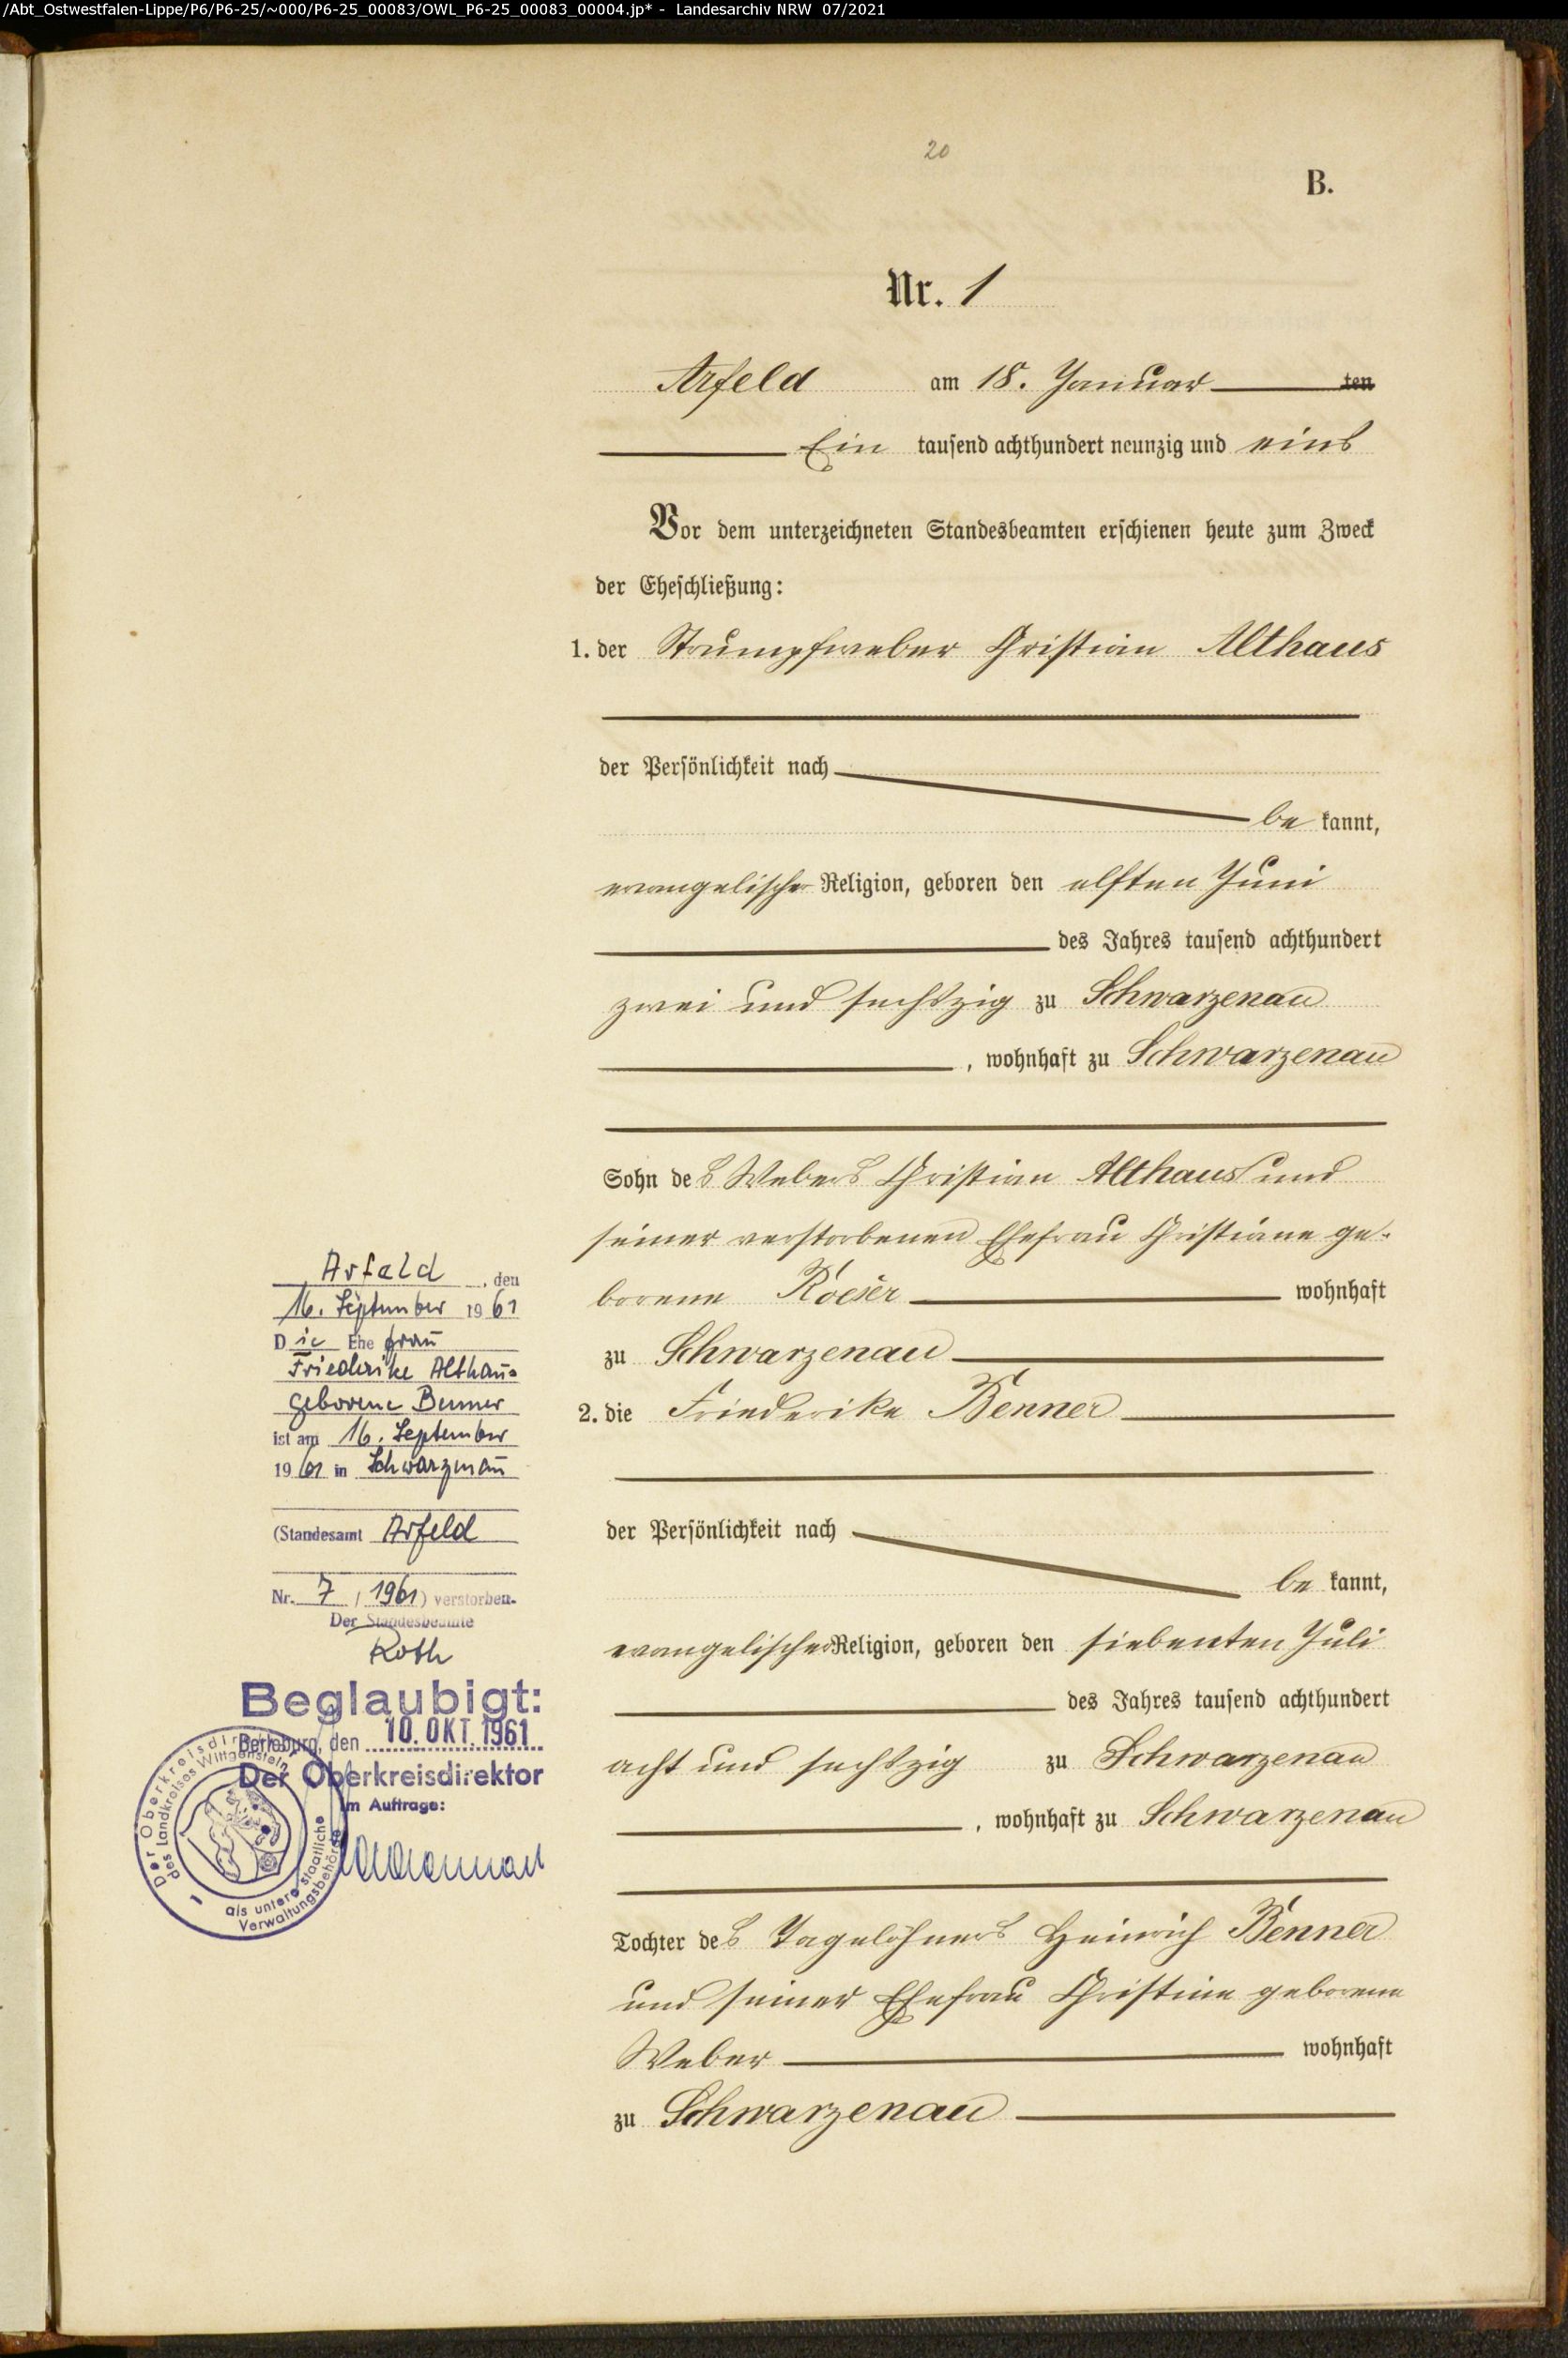 /Abt_Ostwestfalen-Lippe/P6/P6-25/~000/P6-25_00083/OWL_P6-25_00083_00004.jp* - Landesarchiv NRW 07/2021
20
B.
Nr. 1
Arfeld am 18. Januar ten
Ein tausend achthundert neunzig und eins
Vor dem unterzeichneten Standesbeamten erschienen heute zum Zweck
der Eheschließung:
1. der Strumpfweber Christian Althaus
der Persönlichkeit nach
be kannt,
evangelischer Religion, geboren den elften Juni
des Jahres tausend achthundert
zwei und sechszig zu Schwarzenau
, wohnhaft zu Schwarzenau
Sohn des Webers Christian Althaus und
seiner verstorbenen Ehefrau Christiane ge-
borene wohnhaft
zu Schwarzenau
2. die Friederike Benner
der Persönlichkeit nach
be kannt,
evangelischer Religion, geboren den siebenten Juli
des Jahres tausend achthundert
acht und sechszig zu Schwarzenau
, wohnhaft zu Schwarzenau
Tochter des Tagelöhners Heinrich Benner
und seiner Ehefrau Christine geborene
Weber wohnhaft
zu Schwarzenau
Arfeld, den
16. September 1961
Die Ehefrau
Friederike Althaus
geborene Benner
ist am 16. September
1961 in Schwarzenau
(Standesamt Arfeld
Nr. 7 / 1961) verstorben.
Der Standesbeamte
Roth
Beglaubigt:
Berleburg, den 10. OKT. 1961
Der Oberkreisdirektor
Im Auftrage:
Der Oberkreisdirektor
des Landkreises Wittgenstein
als untere staatliche
Verwaltungsbehörde